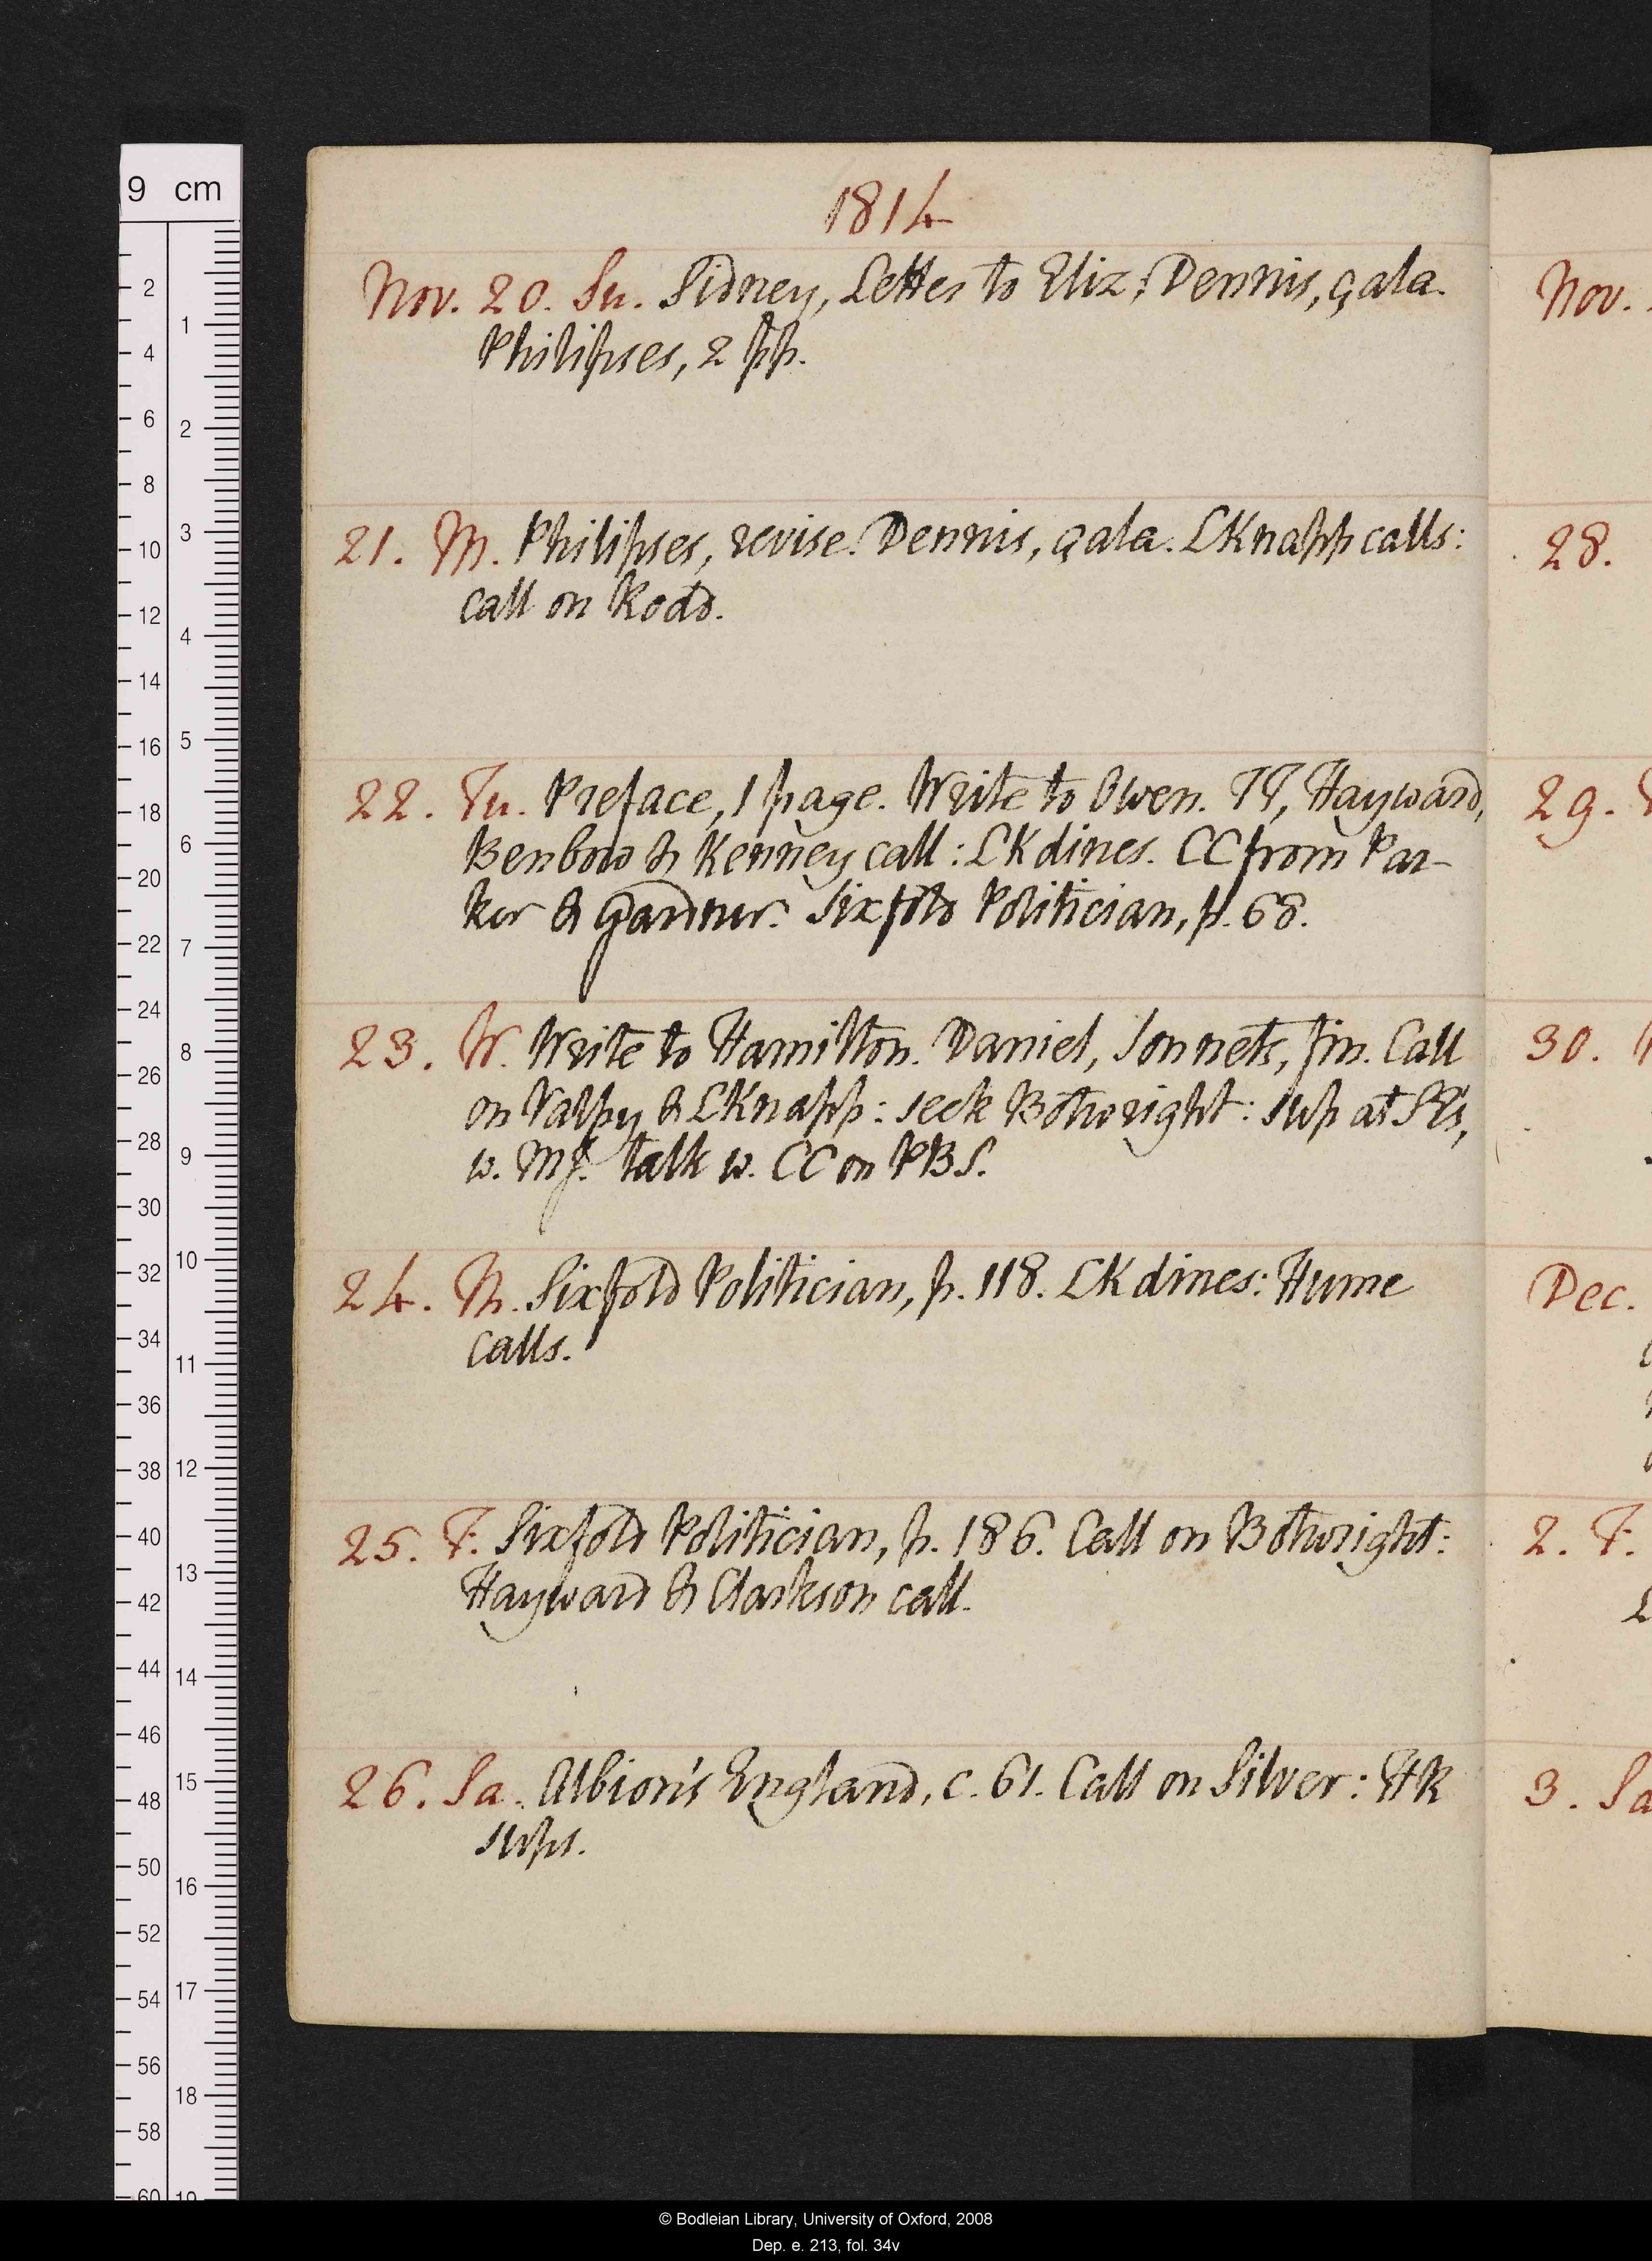 1814
Nov. 20. Su. Sidney, Letter to Eliz: Dennis, çala.
Philipses, 2 pp.
21. M. Philipses, revise. Dennis, çala. LKnapp calls:
call on Rodd.
22. Tu. Preface, 1 page. Write to Owen. TT, Hayward,
Benbow & Kenney call: LK dines. CC from Par-
ker & Gardner. Sixfold Politician, p. 68.
23. W. Write to Hamilton. Daniel, Sonnets, fin. Call
on Valpy & LKnapp: seek Bothwright: sup at
w. MJ. talk w. CC on PBS.
24. Th. Sixfold Politician, p. 118. LK dines: Hume
calls.
25. F. Sixfold Politician, p. 186. Call on Bothwright:
Hayward & Clarkson call.
26. Sa. Albion's England, c. 61. Call on Silver: HR
sups.
Nov.
28.
29.
30.
Dec.
2. F.
3. Sa
9 cm
2 4 6 8 10 12 14 16 18 20 22 24 26 28 30 32 34 36 38 40 42 44 46 48 50 52 54 56 58 60
1 2 3 4 5 6 7 8 9 10 11 12 13 14 15 16 17 18 19
© Bodleian Library, University of Oxford, 2008
Dep. e. 213, fol. 34v